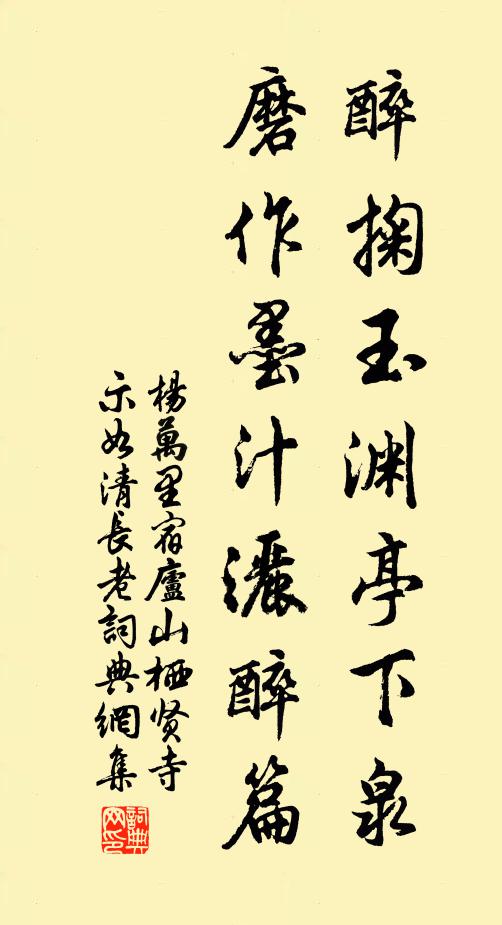 醉掬玉渊亭下泉
磨作墨汁灑醉篇
楊萬里宿廬山栖贤寺
示如清長老詞典網集
詞典
网印